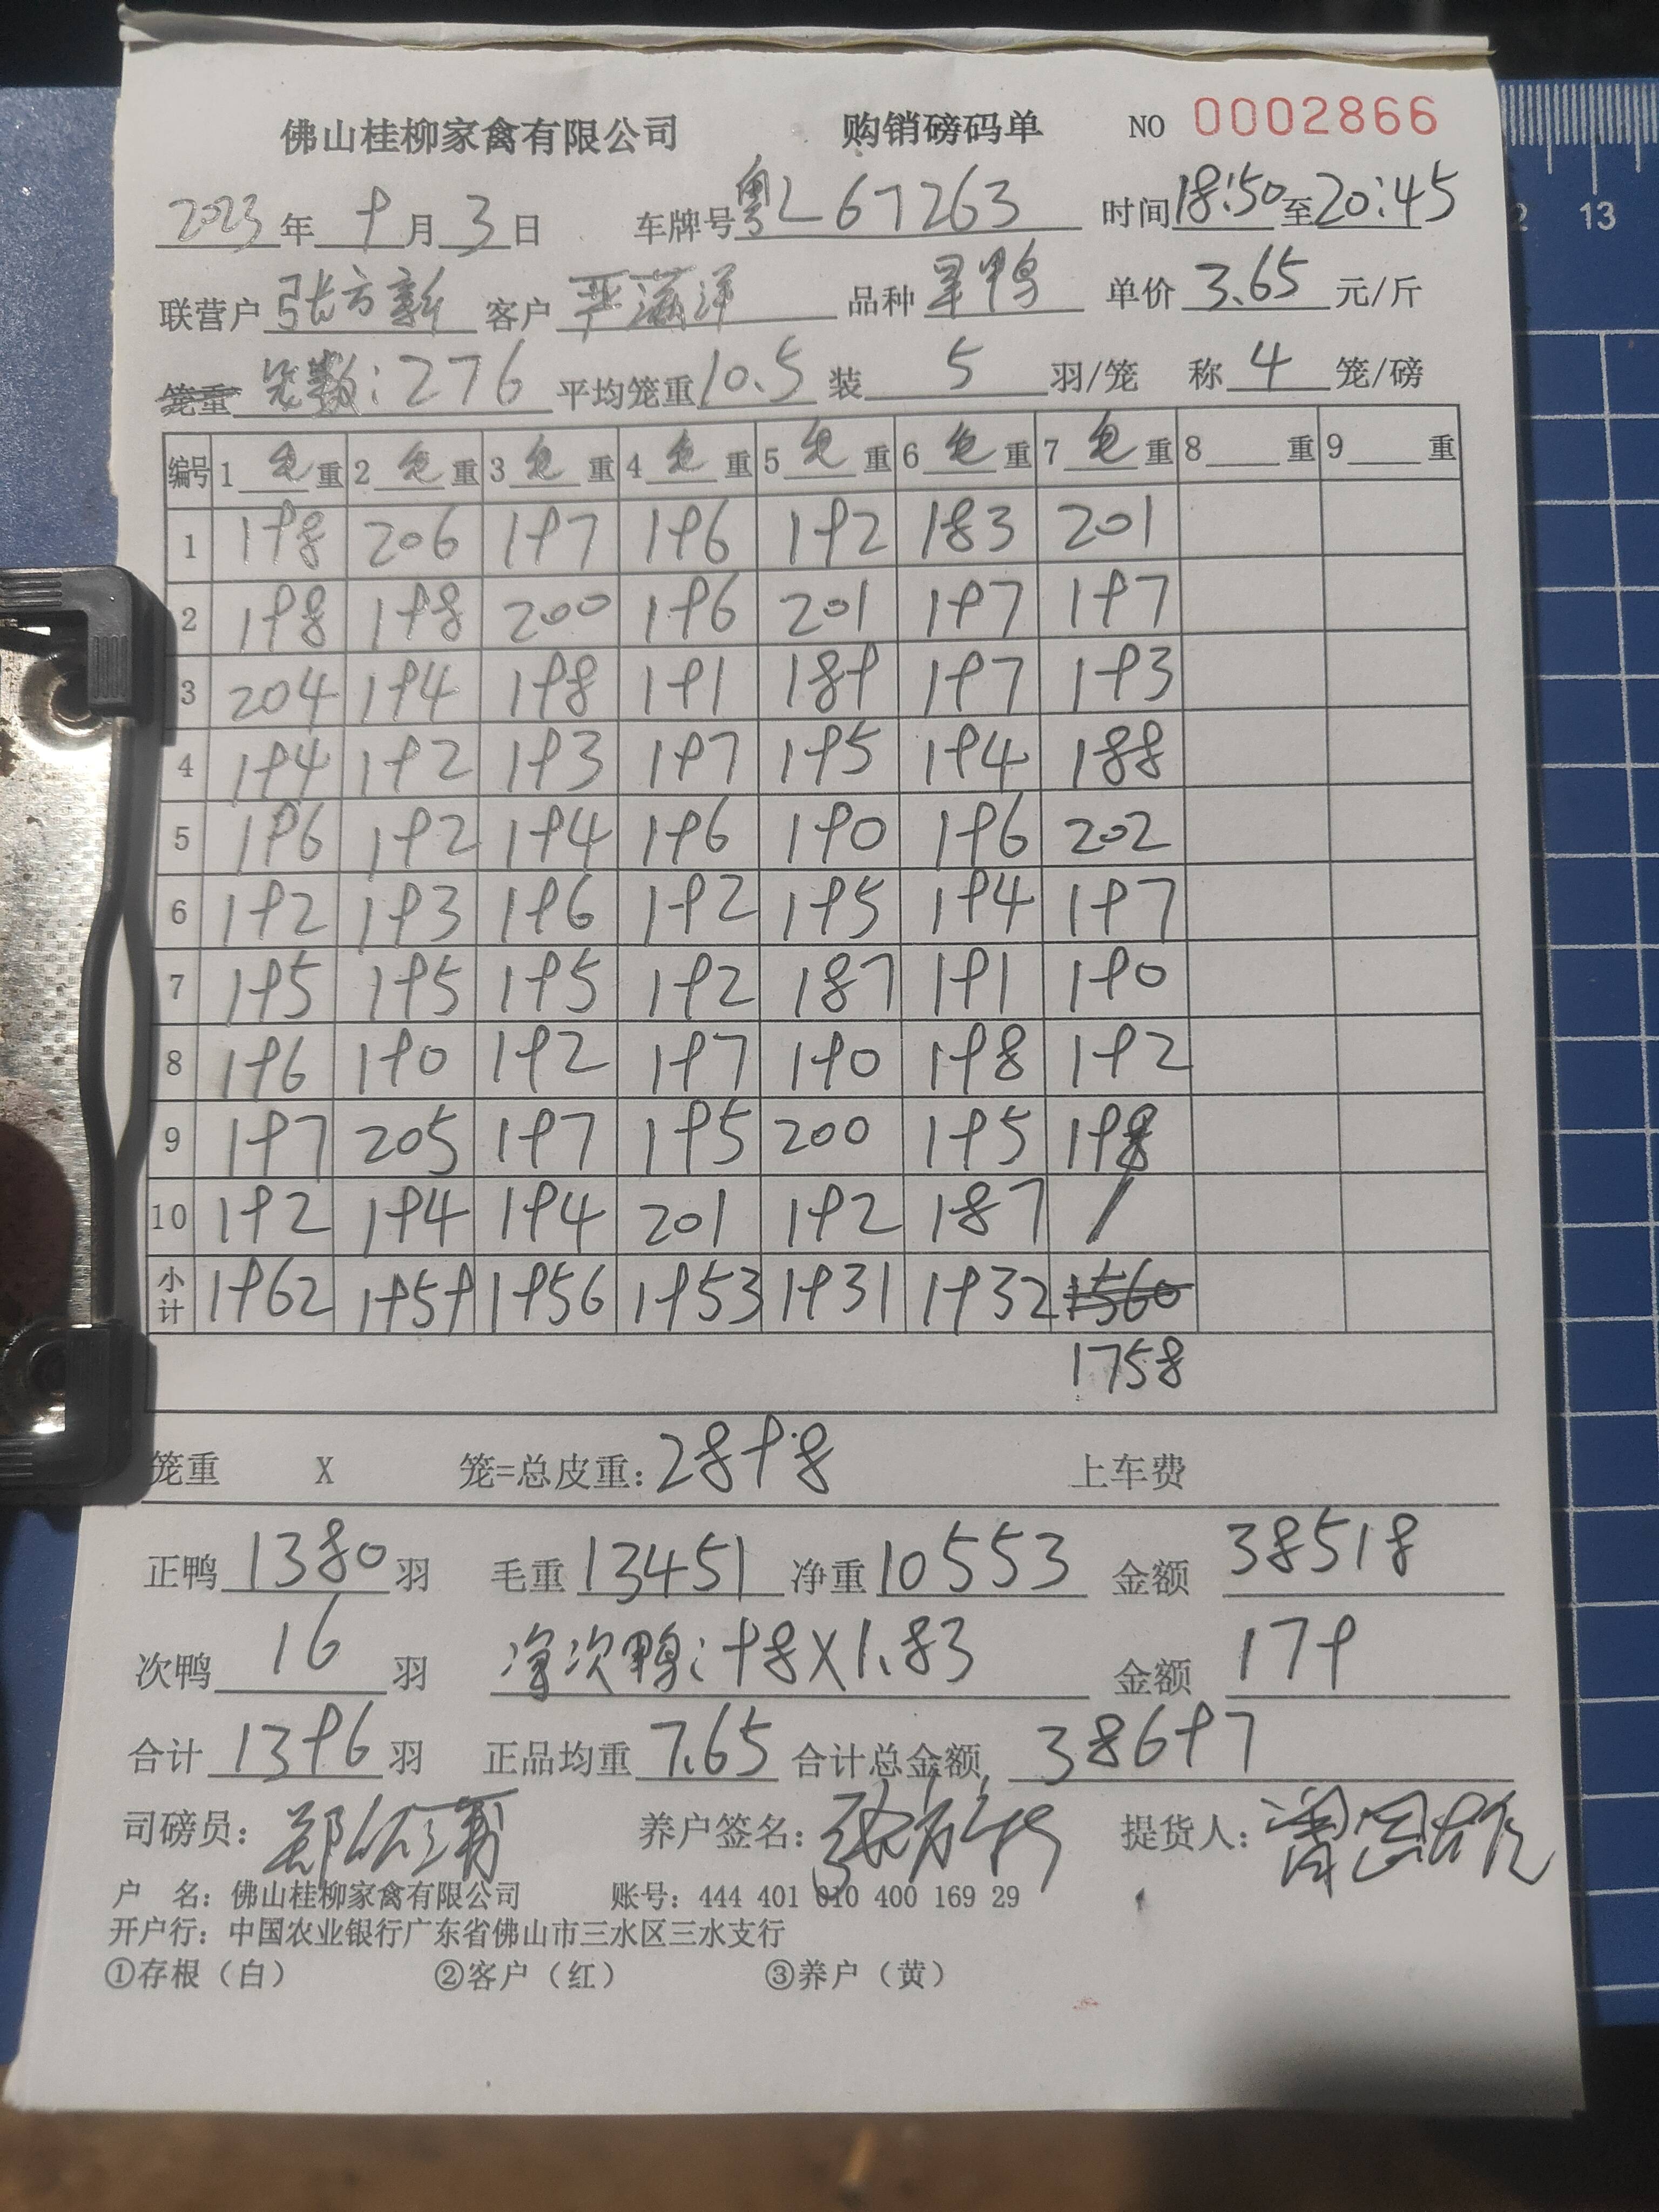 佛山桂柳家禽有限公司 购销磅码单 NO 0002866
2023年 9月 3日 车牌号 粤L 67263 时间 18:50 至 20:45
联营户 张方新 客户 严满洋 品种 旱鸭 单价 3.65 元/斤
笼重 笼数:276 平均笼重 10.5 装 5 羽/笼 称 4 笼/磅
编号 1 毛 重 2 毛 重 3 毛 重 4 毛 重 5 毛 重 6 毛 重 7 毛 重 8 重 9 重
1 198 206 197 196 192 183 201
2 198 198 200 196 201 197 197
3 204 194 198 191 189 197 193
4 194 192 193 197 195 194 188
5 196 192 194 196 190 196 202
6 192 193 196 192 195 194 197
7 195 195 195 192 187 191 190
8 196 190 192 197 190 198 192
9 197 205 197 195 200 195 198
10 192 194 194 201 192 187 /
小计 1962 1959 1956 1953 1931 1932 1560
1758
笼重 X 笼=总皮重: 2898 上车费
正鸭 1380 羽 毛重 13451 净重 10553 金额 38518
次鸭 16 羽 净次鸭:98X1.83 金额 179
合计 1396 羽 正品均重 7.65 合计总金额 38697
司磅员: 养户签名: 提货人:
户 名: 佛山桂柳家禽有限公司 账号: 444 401 010 400 169 29
开户行: 中国农业银行广东省佛山市三水区三水支行
①存根（白） ②客户（红） ③养户（黄）
12 13